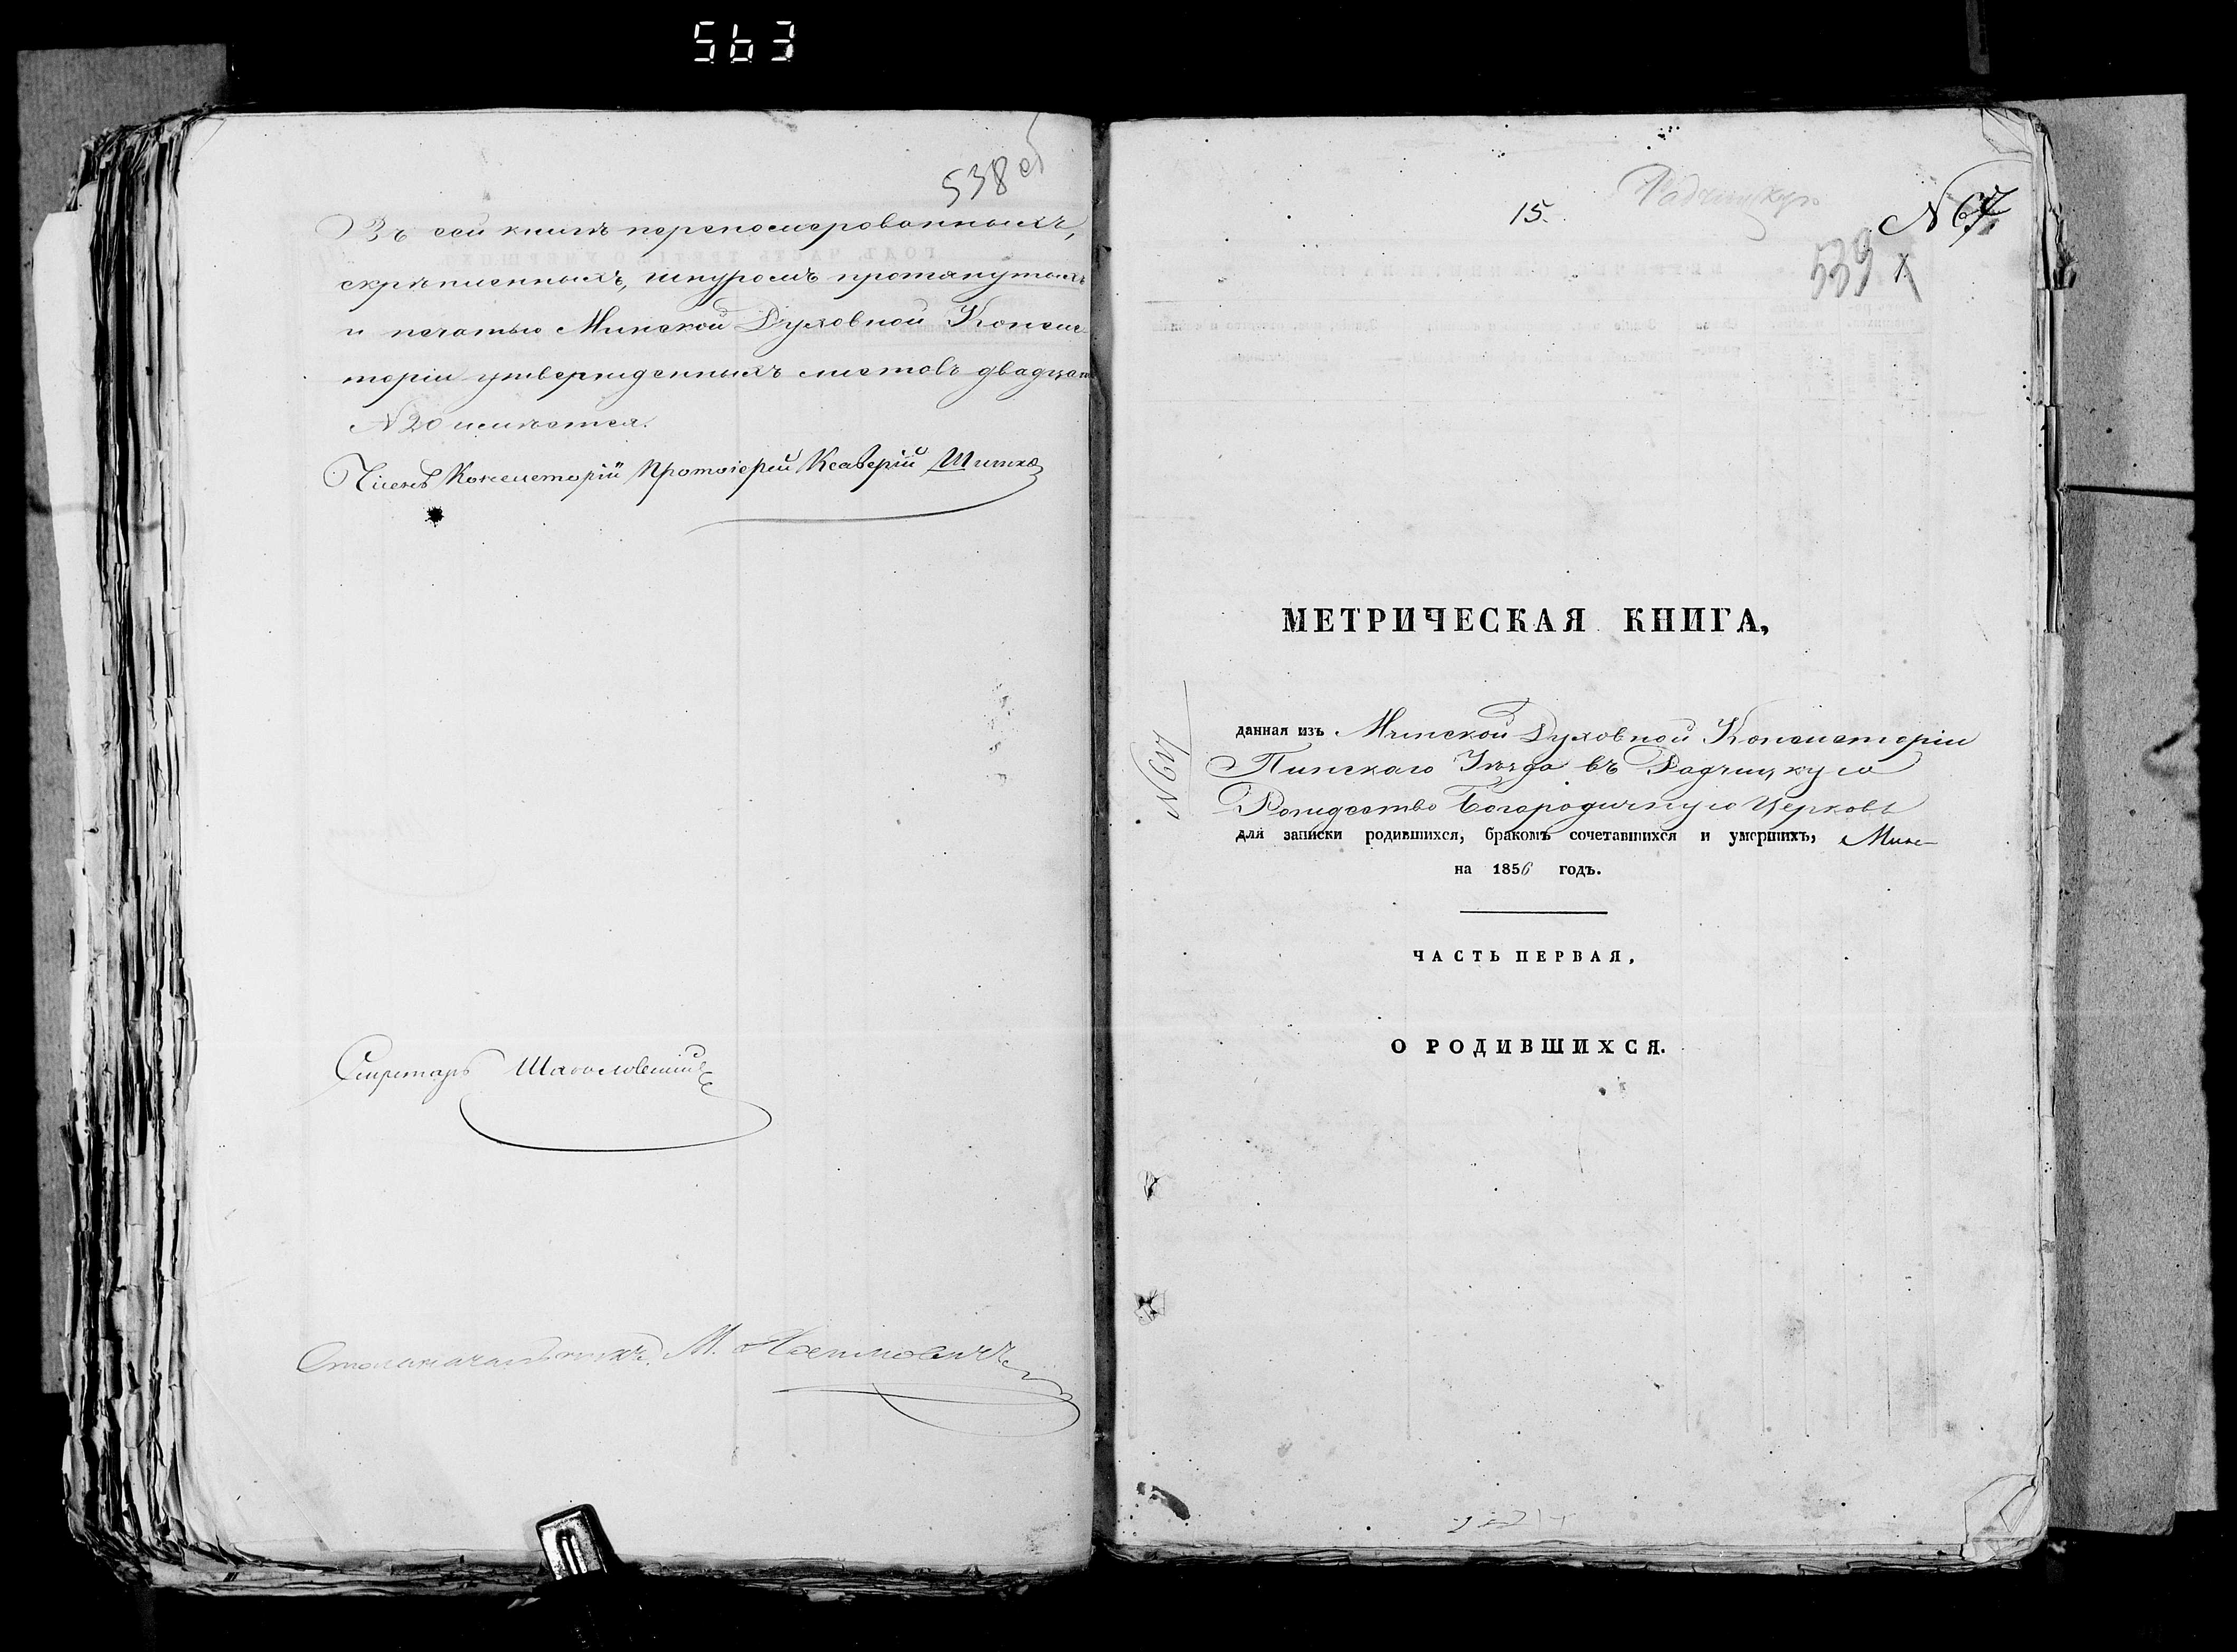 563
538 об
Въ сей книгѣ перепомерованныхъ,
скрѣпленныхъ, шнуромъ протянутыхъ
и печатью Минской Духовной Консис-
торіи утвержденныхъ листовъ двадцать
N 20 имѣется.
Членъ Консисторіи Протоіерей Ксаверій
Секретарь
Столоначальникъ М.
15.
Радчицкую
N 67
539
МЕТРИЧЕСКАЯ КНИГА,
N 67
данная изъ Минской Духовной Консисторіи
Пинскаго Уѣзда въ Радчицкую
Рождество Богородичную Церковь
для записки родившихся, бракомъ сочетавшихся и умершихъ,
на 1856 годъ.
ЧАСТЬ ПЕРВАЯ,
О РОДИВШИХСЯ.